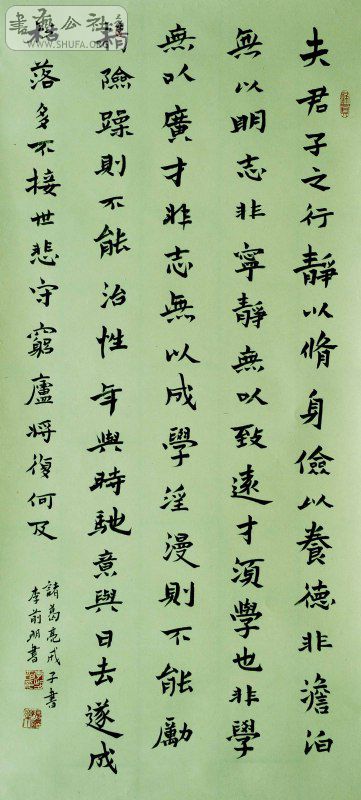 夫君子之行靜以脩身儉以養德非澹泊
無以明志非寧靜無以致遠才須學也非學
無以廣才非志無以成學淫漫則不能勵
精險躁則不能治性年與時馳意與日去遂成
枯落多不接世悲守窮廬將復何及
諸葛亮戒子書
李前明書
WWW.SHUFA.ORG